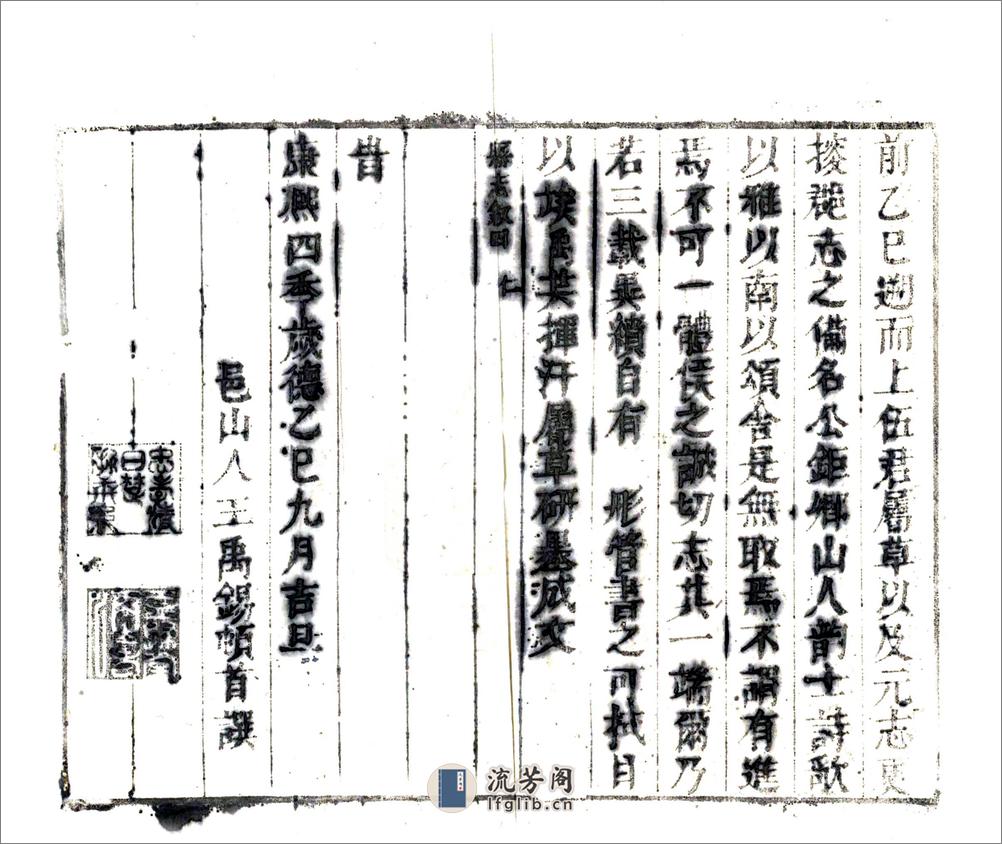 前乙巳遡而上伍君屬草以及元志更
掞郡志之備名公鉅卿山人韵士詩歌
以雅以南以頌舍是無取焉不謂有進
焉不可一體侯之誠切志其一端爾乃
若三載異績自有 彤管書之可拭目
以竢禹其揮汗屬草研墨成文
縣志叙四 仁
旹
康熙四季歲德乙巳九月吉旦
邑山人王禹錫頓首譔
流芳阁
lfglib.cn